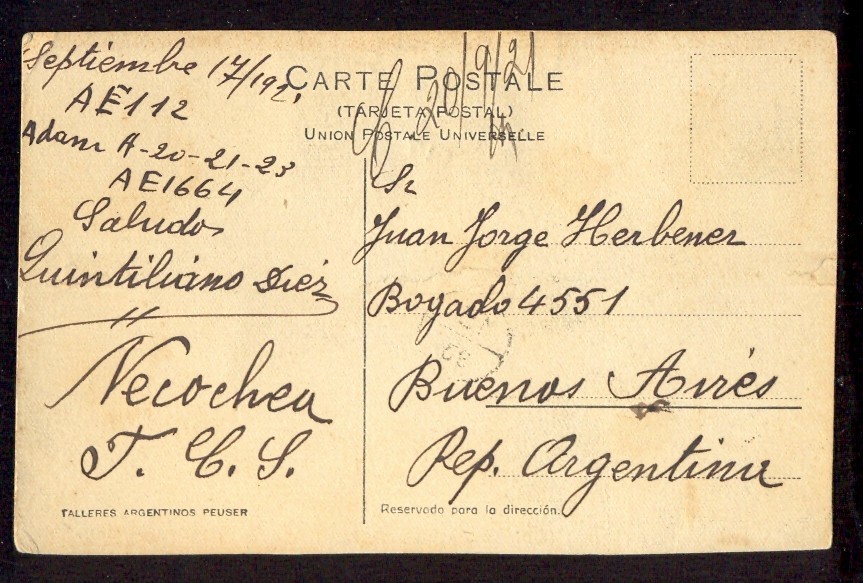 Septiembre 17/1921
AE112
Adam A-20-21-23
AE1664
Saludos
Quintiliano Diéz
Necochea
F. C. S.
TALLERES ARGENTINOS PEUSER
CARTE POSTALE
(TARJETA POSTAL)
UNION POSTALE UNIVERSELLE
C 20/9/21
Sr
Juan Jorge Herbener
Bogado 4551
Buenos Aires
Rep. Argentina
Reservado para la dirección.